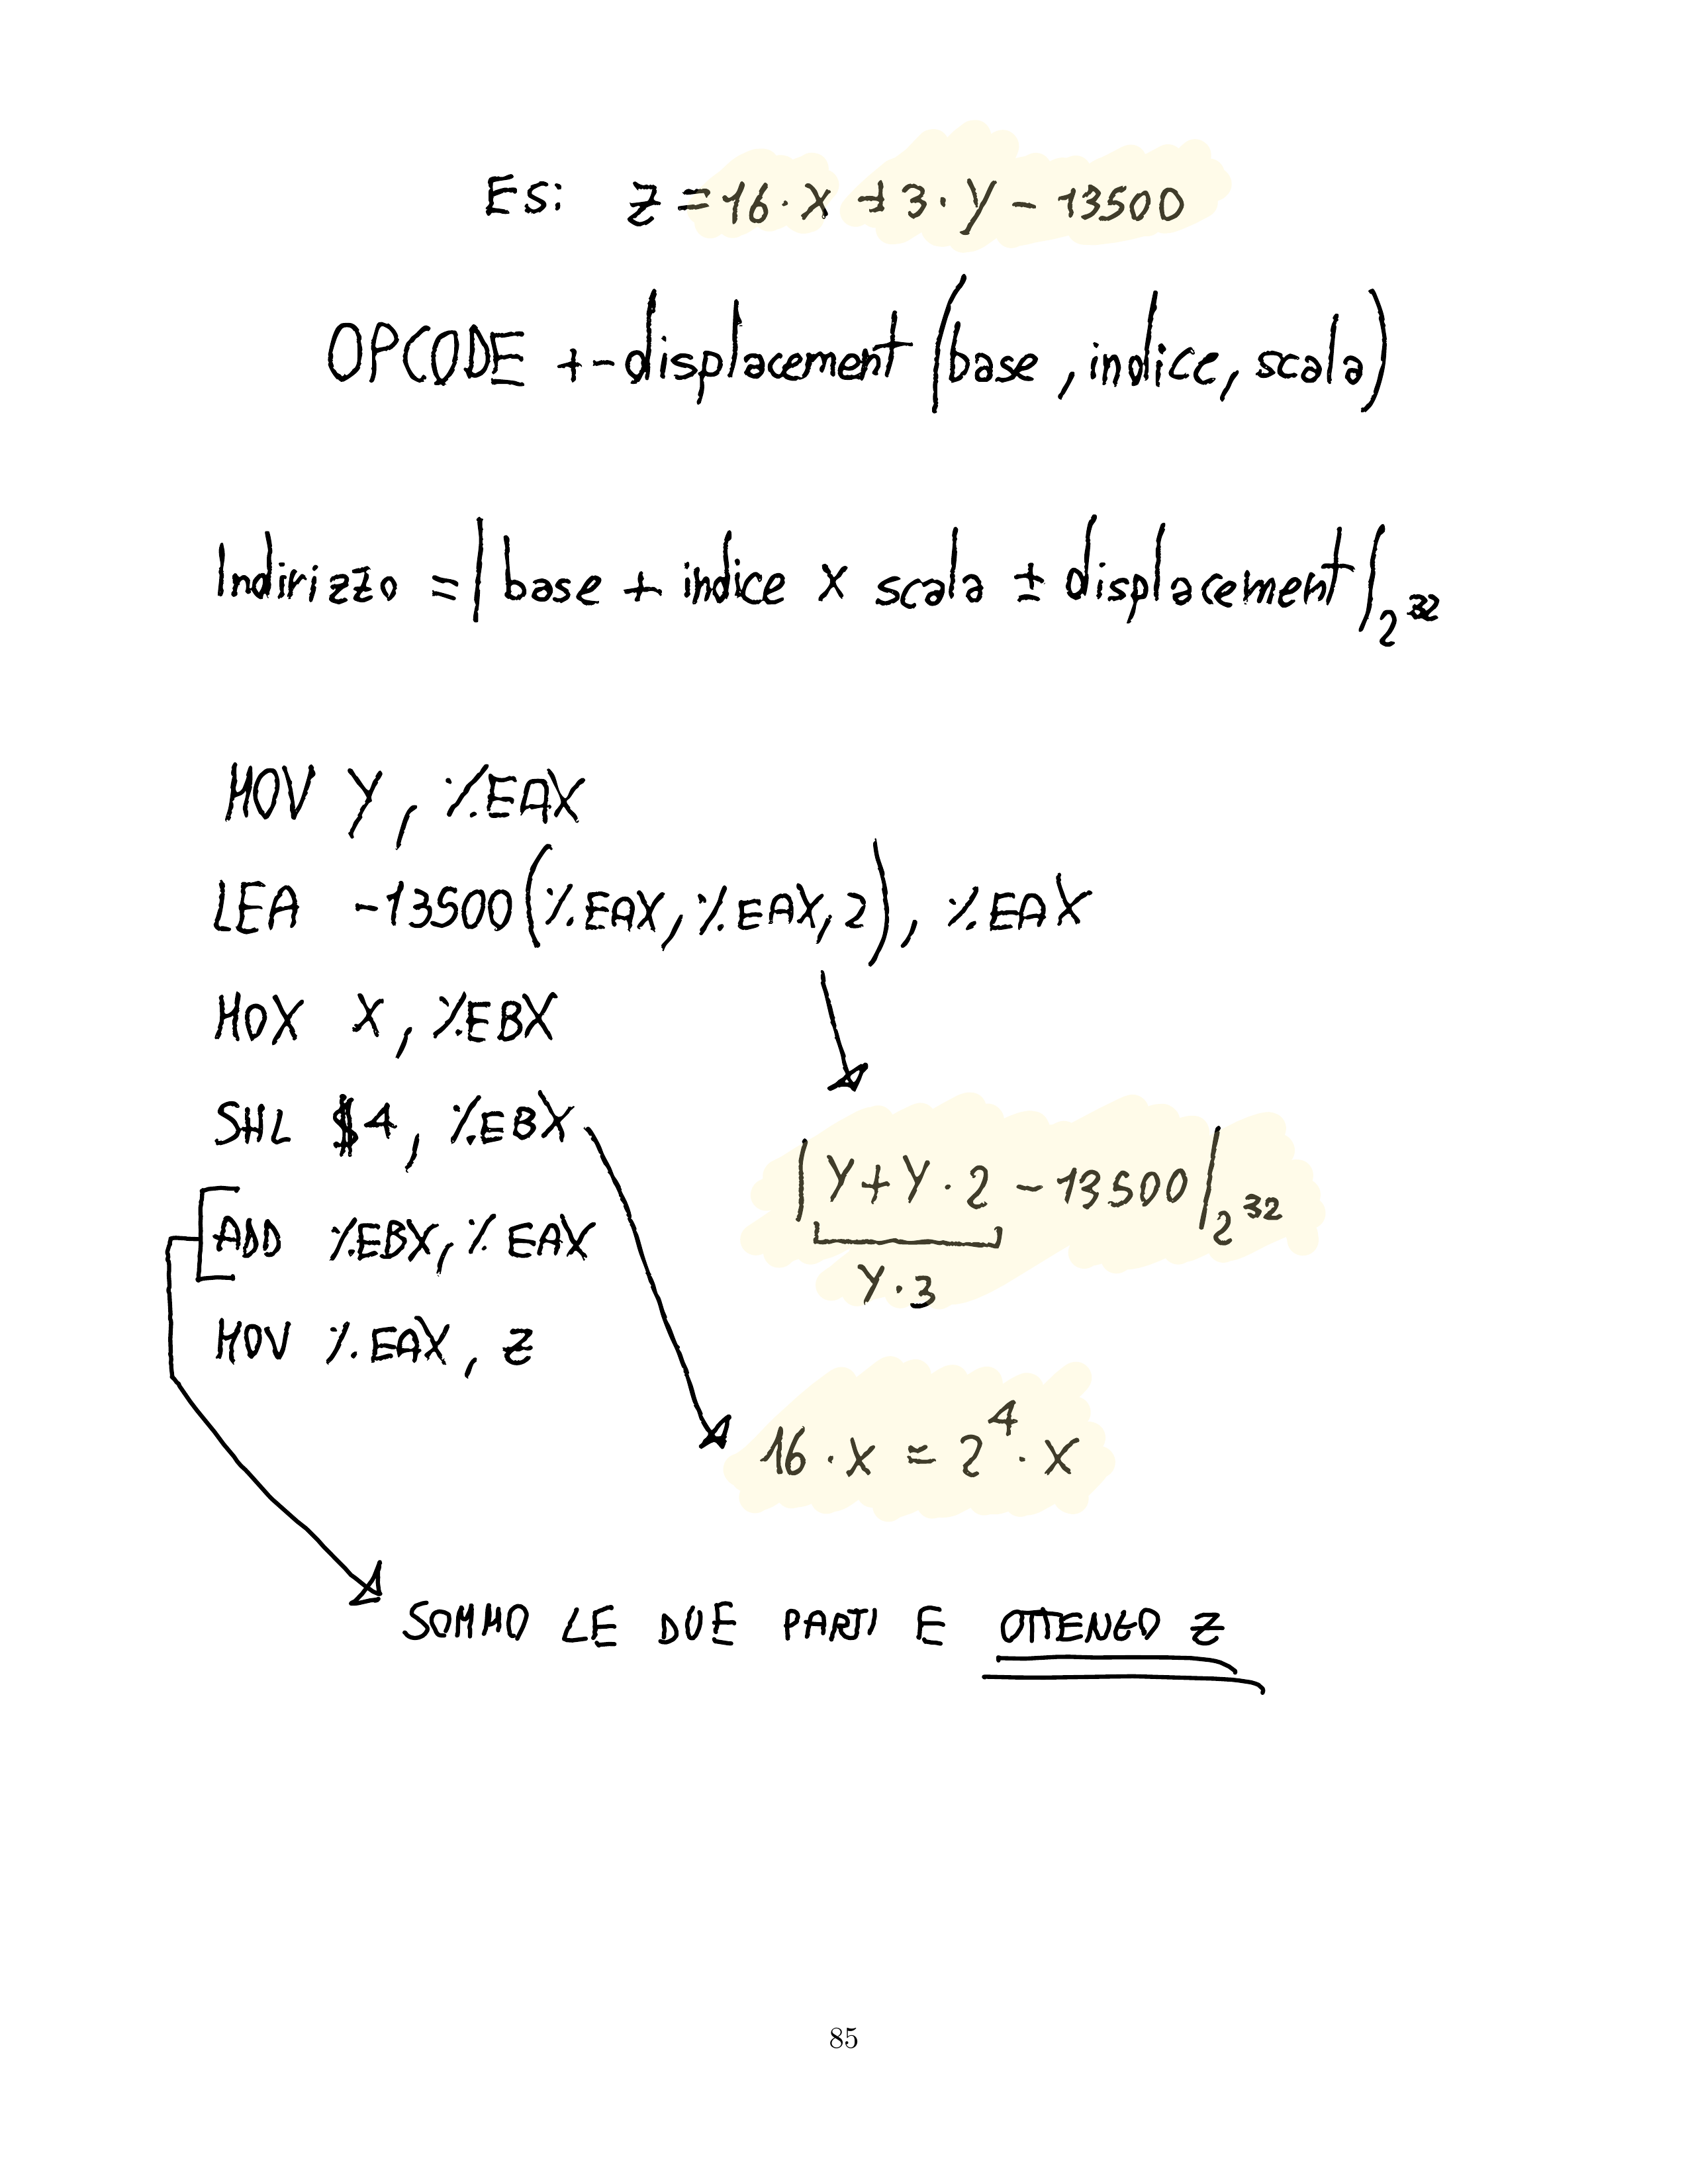 ES: Z = 16 · X + 3 · Y - 13500
OPCODE +- displacement (base, indice, scala)
Indirizzo = | base + indice x scala ± displacement |₂³²
MOV Y, %EAX
LEA -13500(%EAX, %EAX, 2), %EAX
MOX X, %EBX
SHL $4, %EBX
| Y + Y · 2 - 13500 |₂³²
ADD %EBX, %EAX
Y · 3
MOV %EAX, Z
16 · X = 2⁴ · X
SOMMO LE DUE PARTI E OTTENGO Z
85